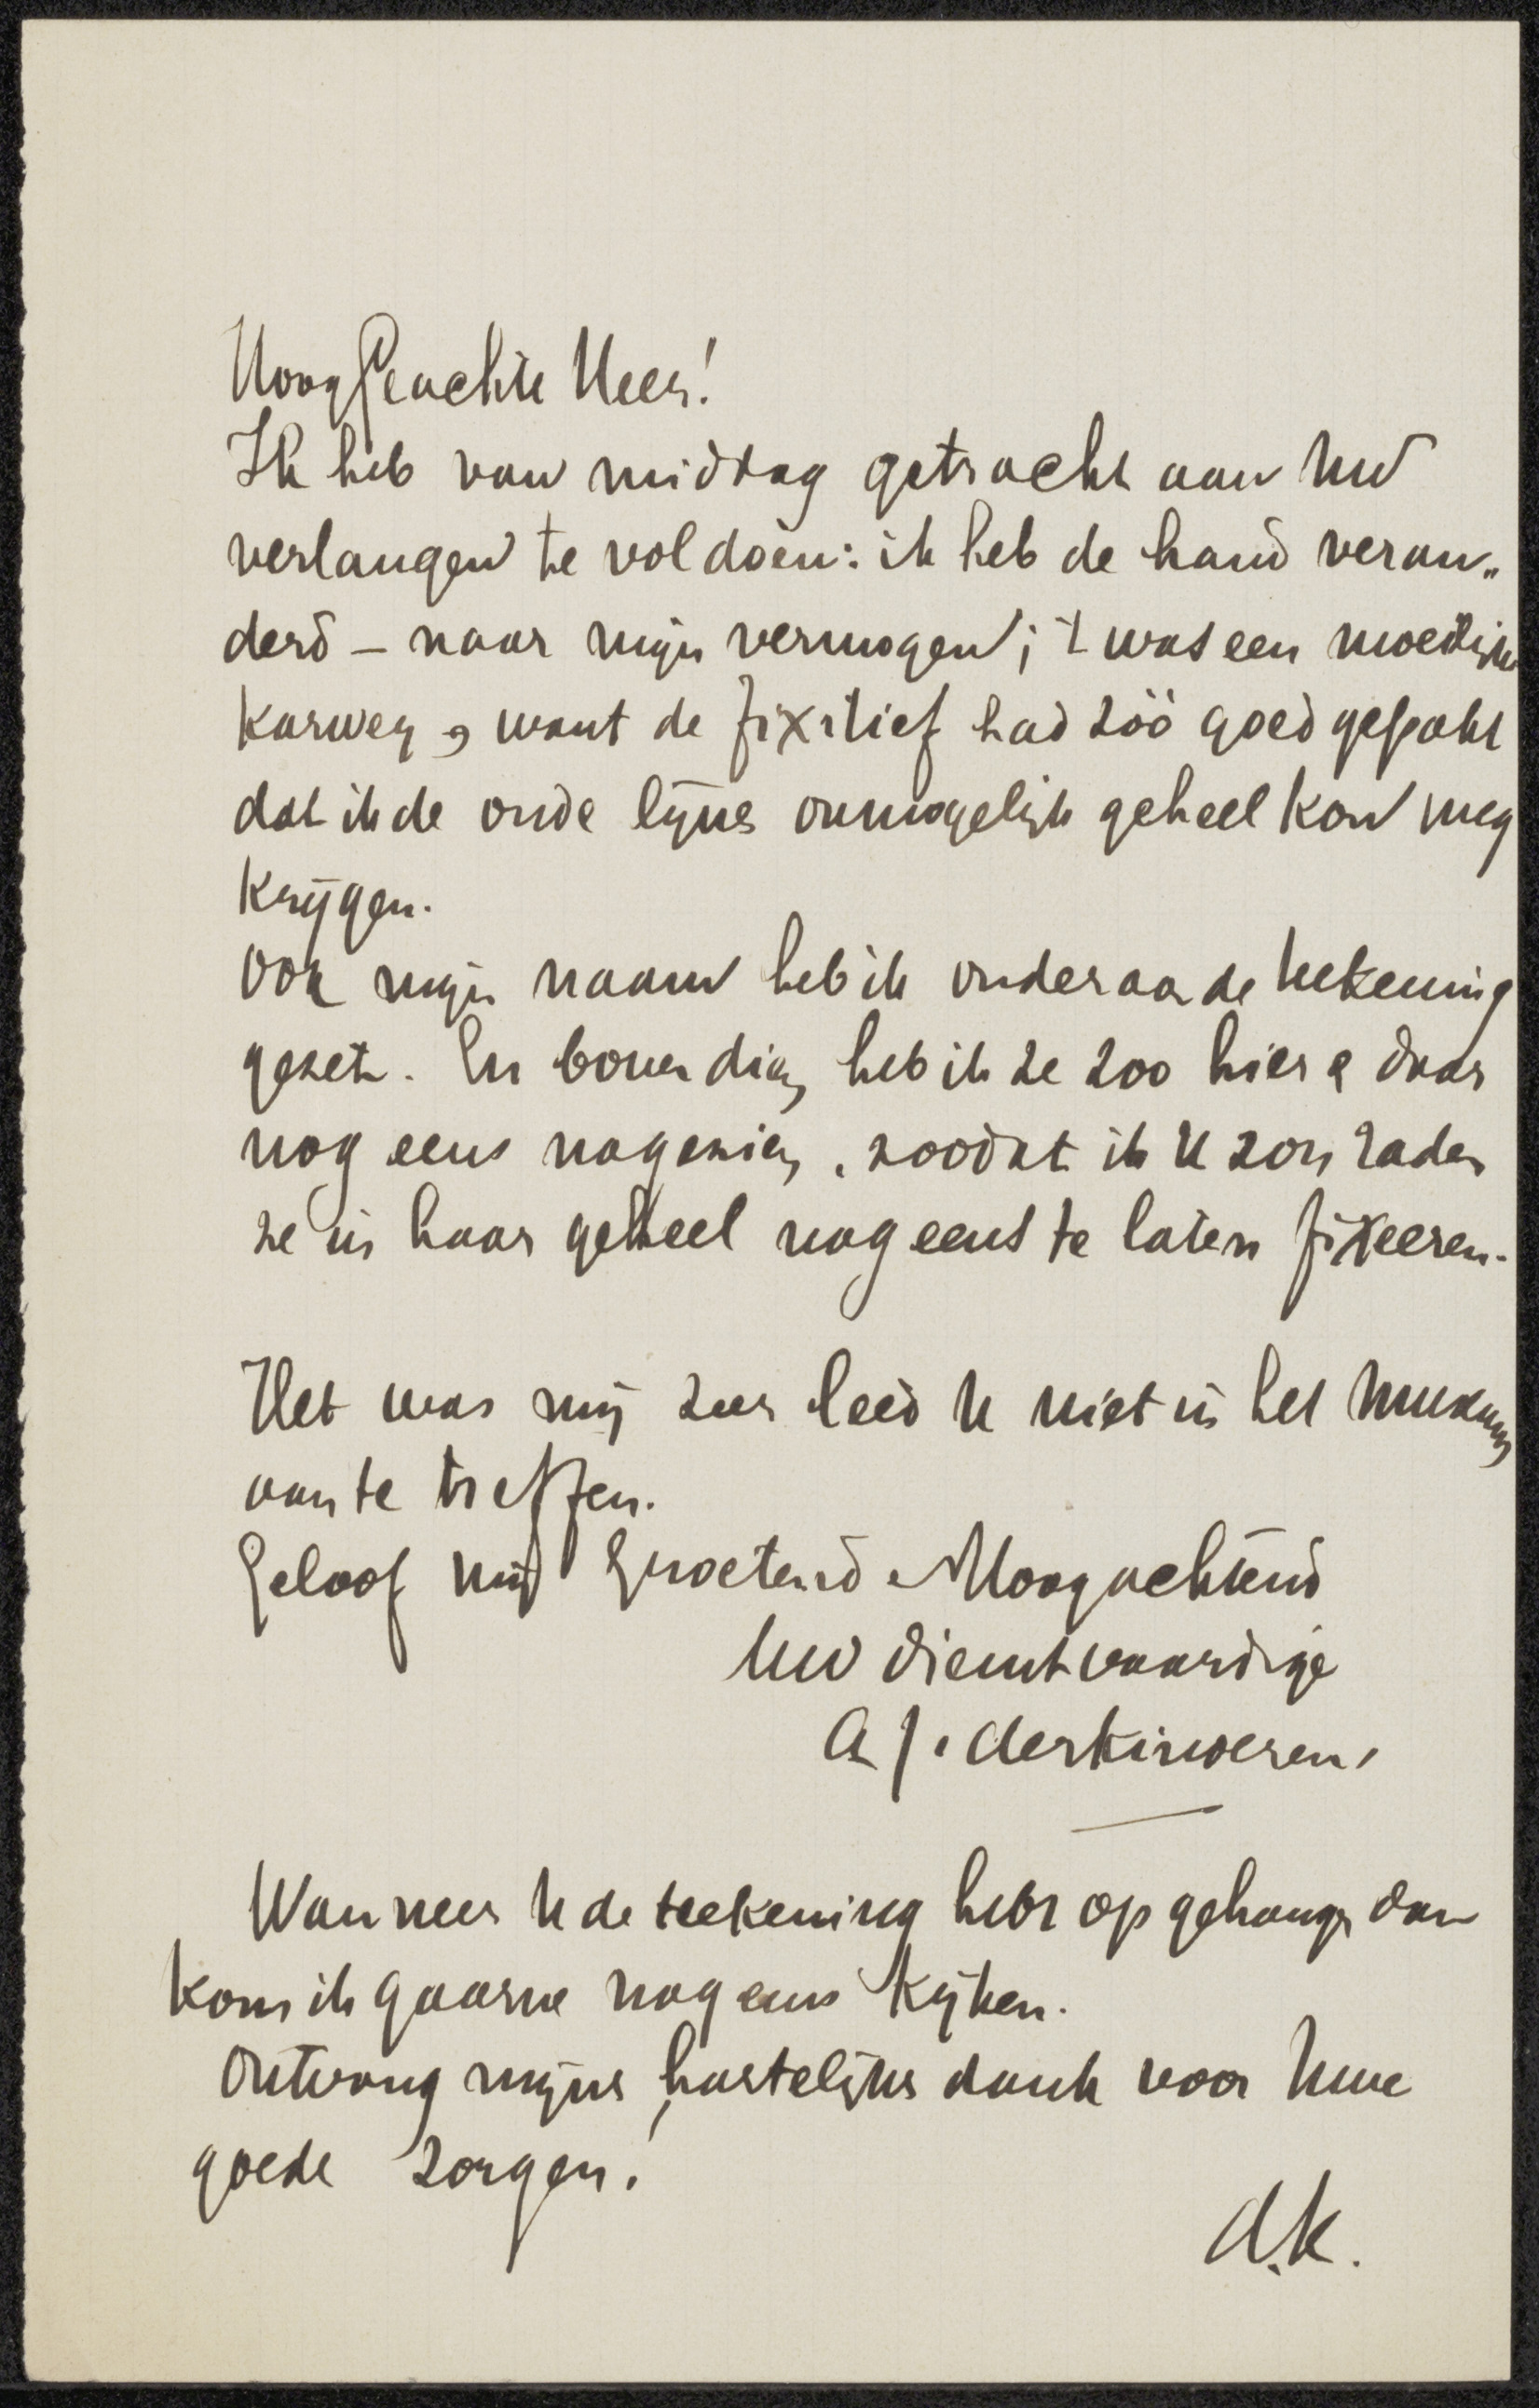 HoogGeachte Heer!
Ik heb van middag getracht aan Uw
verlangen te voldoen: ik heb de hand veran„
derd – naar mijn vermogen; 't was een moeilijke
karwey, want de fixitief had zóó goed gepakt
dat ik de oude lijnen onmogelijk geheel kon weg
krijgen.
Ook mijn naam heb ik onderaan de teekening
gezet. En bovendien heb ik ze zoo hier & daar
nog eens nagezien, zoodat ik U zou raden
ze in haar geheel nog eens te laten fixeeren.
Het was mij zeer leed U niet in het Museum
aan te treffen.
Geloof mij Groetend Hoogachtend
Uw dienstvaardige
A J. derkinderen,
Wanneer U de teekening hebt opgehangen dan
kom ik gaarne nog eens kijken.
Ontvang mijne hartelijke dank voor Uwe
goede zorgen!
d.K.